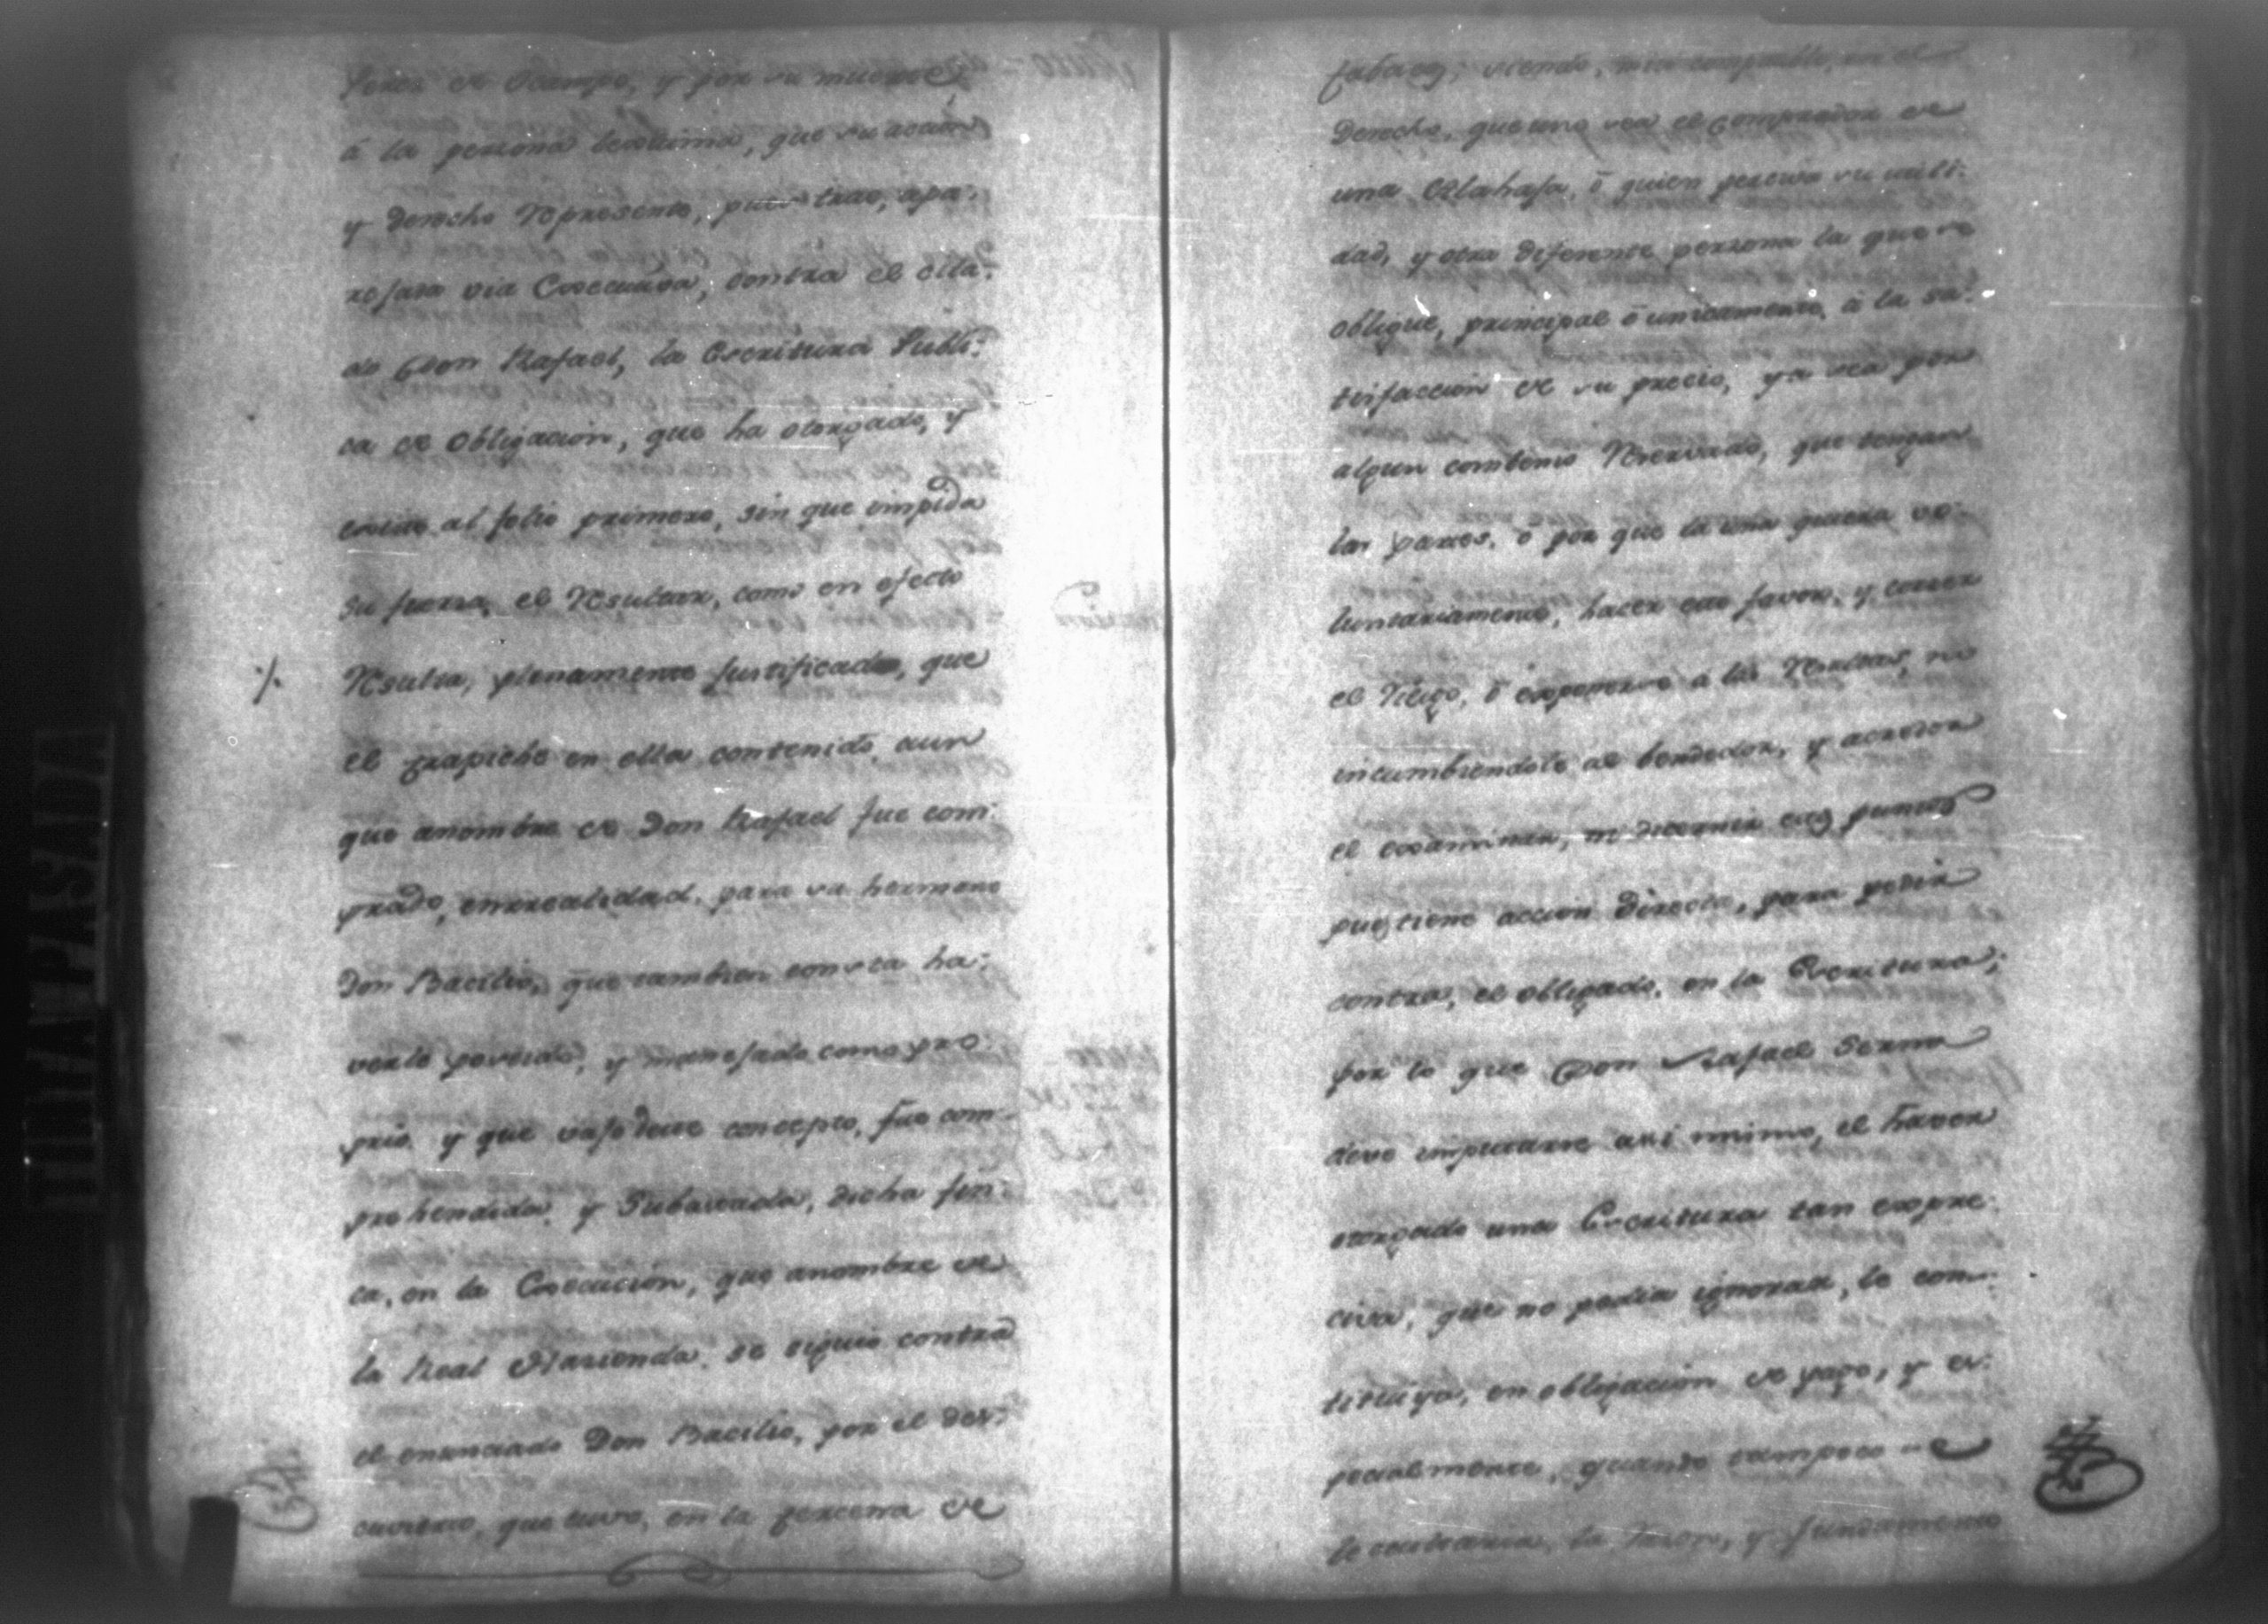 Perez de Ocampo, y por su muerte
á la persona lexitima, que su accion
y derecho represente, pues trae, apa-
rejada via Executiva, contra el cita-
do Don Rafael, la Escritura Publi-
ca de obligacion, que ha otorgado, y
existe al folio primero, sin que impida
su fuerza, el resultar, como en efecto
resulta, plenamente justificado, que
el trapiche en ella contenido, aun
que anombre de Don Rafael fue com-
prado, enrrealidad, para su hermano
Don Bacilio, que tambien consta ha-
verle poseido, y manejado como pro-
prio y que vajo deste concepto, fue com-
prehendida, y Subastada, dicha fin-
ca, en la Execucion, que anombre de
la Real Hazienda, se siguio contra
el enunciado Don Bacilio, por el des-
cuvierto, que tuvo, en la tercena de
tabacos; siendo, mui compatible, en el
Derecho, que uno sea el comprador de
una Alahaja, ó quien perciva su utili-
dad, y otra diferente persona la que se
obligue, principal ó unicamente, á la sa-
tisfaccion de su precio, ya sea por
algun combenio reservado, que tengan
las partes, ó por que la una quiera vo-
luntariamente, hacer este favor, y correr
el riesgo, ó exponerse a las resultas, no
incumbiendole al bendedor, y acreedor
el examinar, ni dicernir estos puntos
pues tiene accion directa, para pedir
contra, el obligado, en la Escritura;
por lo que Don Rafael Serna
deve imputarse asi mismo, el haver
otorgado una Escritura tan expre-
civa, que no podia ignorar, le cons-
tituiya, en obligacion de pago, y es-
pecialmente, quando tampoco se
le ocultaria, la razon, y fundamento